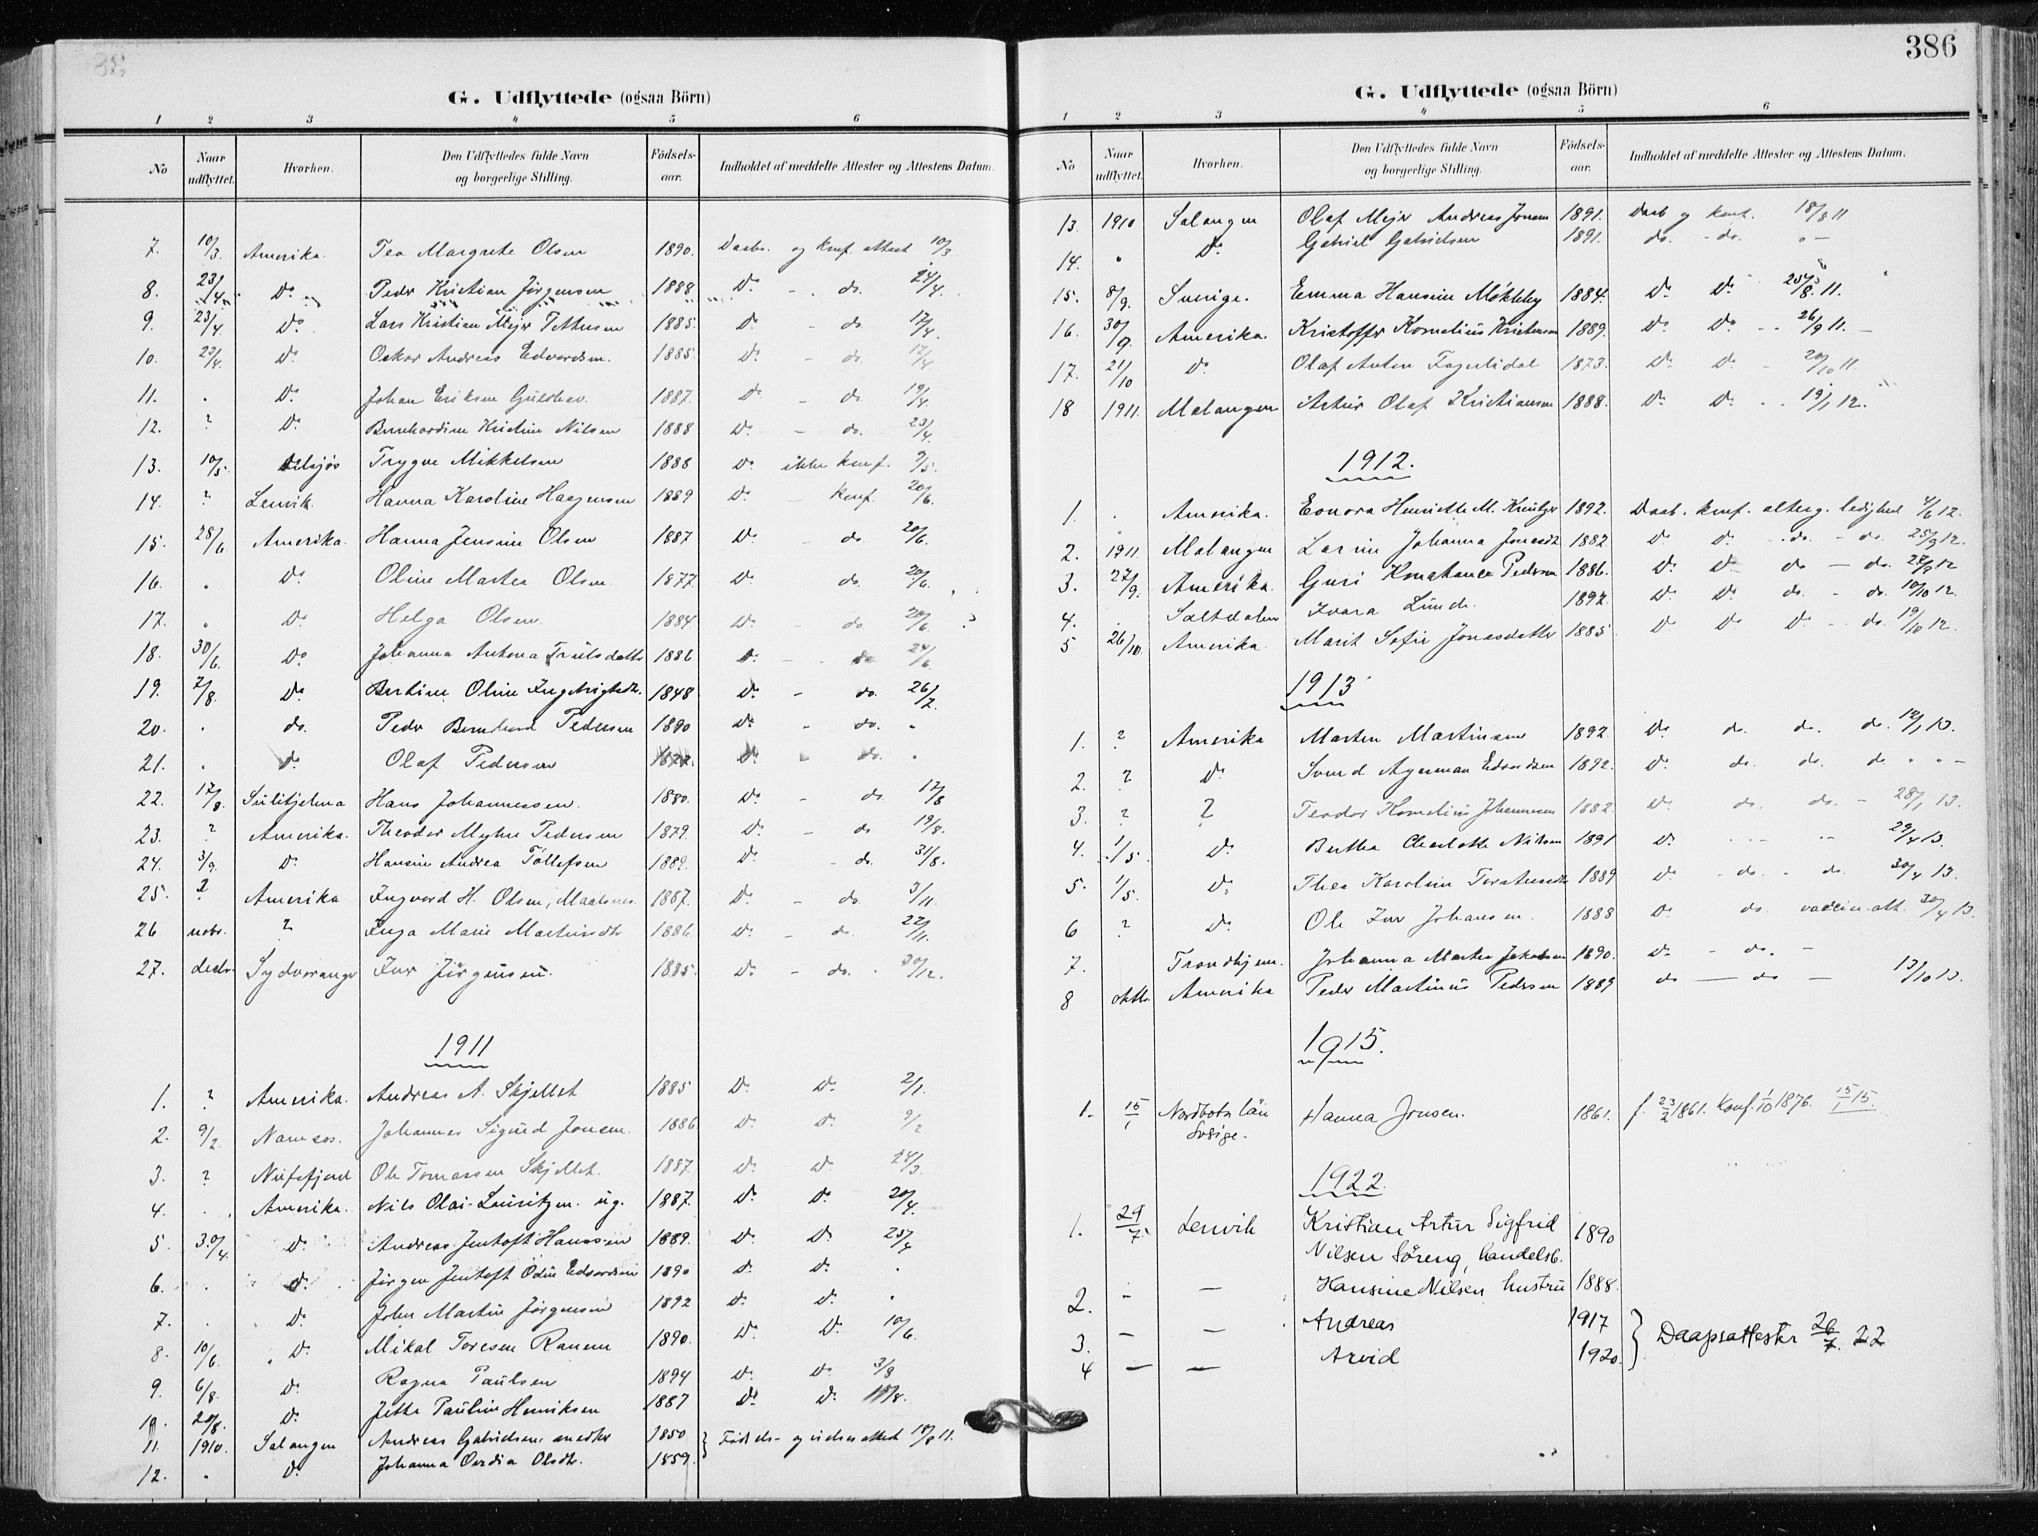 G. Udflyttede (ogsaa Börn)
1 2 3 4 5 6
No Naar udflyttet. Hvorhen. Den Udflyttedes fulde Navn og borgerlige Stilling. Födsels-aar. Indholdet af meddelte Attester og Attestens Datum.
7. 10/3. Amerika. Tea Margrete Olsen 1890. Daabs. og konf. attest 10/3
8. 23/4. Do Peder Kristian Jørgensen 1888 Do - do. 24/4.
9. 23/4. Do Lars Kristian Mejer 1885. Do - do. 17/4.
10. 23/4. Do Oskar Andreas Edvardsen. 1885. Do - do. 17/4
11. . Do Johan Eriksen 1887. Do - do. 19/4.
12. ? Do Bernhardine Kristine Nilsen 1888 Do - do. 23/4.
13. 10/5. Trygve Mikkelsen 1888 Do ikke konf. 9/5.
14. ? Lenvik. Hanna Karoline Haagensen 1889 Do - konf. 20/6.
15. 28/6 Amerika. Hanna Jensine Olsen 1887 Do - do. 20/6.
16. . Do Oline Martea Olsen 1877. Do do. 20/6.
17. . Do Helga Olsen. 1884. Do - do 20/6.
18. 30/6. Do Johanna Antona Trulsdatter 1886 Do - do 24/6.
19. 2/8. Do Bertine Oline 1848 Do - do. 26/7.
20. . do. Peder Bernhard Pedersen 1890 Do - do. "
21. do Olaf Pedersen Do - do. "
22. 17/8. Sulitjelma Hans Johannessen. 1880. Do - do. 17/8
23. ? Amerika. Theodor Myhre Pedersen 1879. Do - do 19/8.
24. 3/9. Do Hansine Andrea Tollefsen 1889. Do - do. 31/8.
25. ? Amerika Ingvard H. Olsen, 1887. Do - do. 3/11.
26 novbr. ? Inga Marie 1886. Do - do 22/11.
27. decbr. Sydvaranger Ivar Jørgensen. 1885. Do - do. 30/12.
1911
1. ? Amerika. Andreas A. Skjellet 1885 Do Do 2/1.
2. 9/2. Namsos. Johannes Sigurd Jensen. 1886 Do Do 9/2
3. ? Ole Tomassen Skjellet. 1887. Do Do 24/3.
4. . Amerika. Nils Olai Lauritzen ug. 1887. Do Do 20/4.
5. 30/4. Do Andreas Jentoft Hanssen 1889. Do Do 25/4
6. . do. Jørgen Jentoft Odin Edvardsen 1890 Do Do "
7. . Do John Martin Jørgensen 1892 Do Do "
8. 10/6. Do Mikal Toresen 1890. Do Do 10/6.
9. 6/8. Do Ragna Paulsen 1894 Do Do 3/8
10. 20/8. Do Jetta Pauline Henriksen 1887 Do Do 18/8.
11. 1910. Salangen Andreas Gabrielsen 1850 } Fødsels- og attest 18/8 11.
12. " Do Johanna Olsdtr. 1859.
386
G. Udflyttede (ogsaa Börn)
1 2 3 4 5 6
No Naar udflyttet. Hvorhen. Den Udflyttedes fulde Navn og borgerlige Stilling. Födsels-aar. Indholdet af meddelte Attester og Attestens Datum.
13. 1910 Salangen Olaf Mejer Andreas Jensen 1891. Daab og konf. 18/8 11
14. " Do Gabriel Gabrielsen 1891. do. - do. " -
15. 8/9. Sverige. Emma Hansine Møkleby 1884. Do Do 25/8. 11.
16. 30/9. Amerika. Kristoffer Kornelius Kristensen 1889. Do Do - - 26/9 11. -
17. 21/10 Do Olaf Anton Fagerlidal 1873. Do Do - 20/10 11
18 1911. Malangen Artur Olaf Kristiansen 1888. Do Do - - 19/1 12.
1912.
1. . Amerika. Eonora Henriette M. Kreutzer 1892. Daab. konf. alterg. ledighed 4/6 12.
2. 1911. Malangen Larine Johanna Jonasdtr 1882 Do Do do. - do. 25/9 12.
3. 27/9. Amerika Guri Konstance Pedersen 1886. Do Do do - do. 27/9 12
4. . Saltdalen Ivara Lunde. 1892. Do Do do. - do. 10/10 12.
5 26/10. Amerika. Marit Sofie Jonasdatter 1885 Do Do Do - do. 19/10 12.
1913
1. ? Amerika Marten Martinsen 1892 Do do. do. do. 12/1 13.
2. ? Do Svend Agerman Edvardsen 1892. Do do. do. do. " " -
3. ? ? Teodor Kornelius Johannesen 1882. Do do. do. - 28/1 13.
4. 1/5. Do Bertha Charlotte Nilsen 1891 Do - - 29/4 13.
5. 1/5. Do Thea Karoline 1889 Do - do. - do. 30/4 13.
6 ? Do Ole Ivar Johansen. 1888 Do do. vaccin. att. 30/4 13.
7. Trondhjem. Johanna Martea Jakobsen 1890. Do - do. -
8 oktbr. Amerika Peder Martinus Pedersen 1889 do - do - 13/10 13.
1915.
1. 15/1 Nordbotn län Hanna Jensen. 1861. f. 23/2 1861. Konf. 1/10 1876. 15/1 15.
Sverige.
1922.
1. 29/7. Lenvik Kristian Artur Sigfrid 1890
Nilsen Söreng, handelsb.
2. - - Hansine Nilsen hustru 1888.
3. - - Andreas 1917 } Daapsattester 26/7. 22
4 - - Arvid 1920.